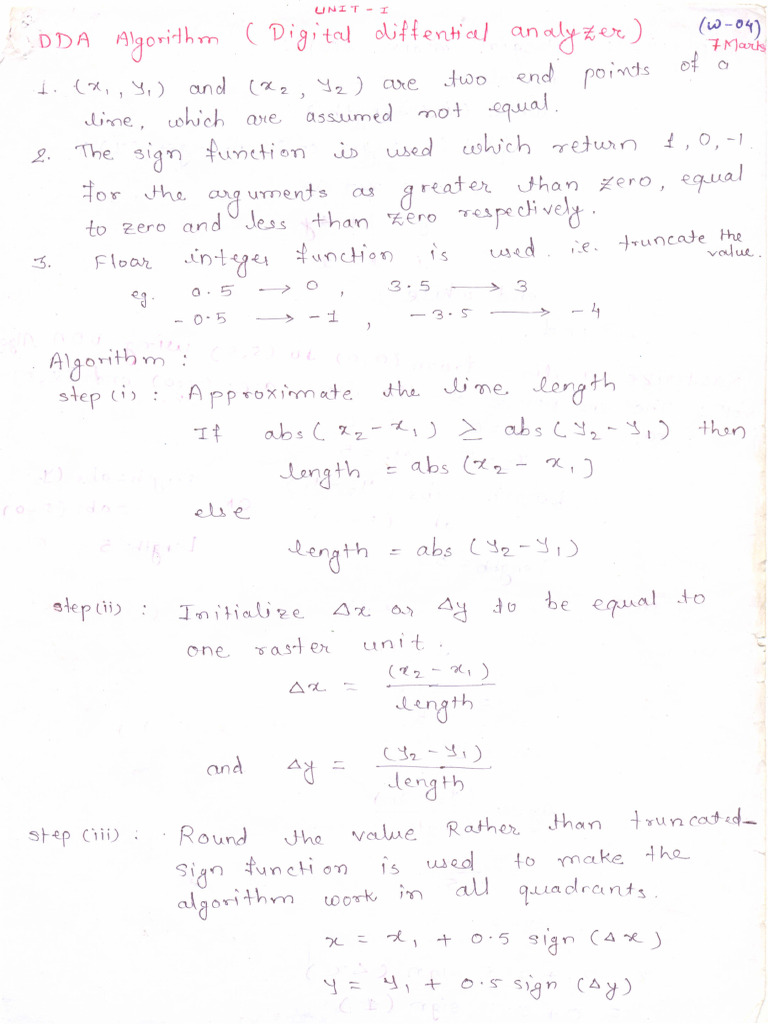 UNIT - I
DDA Algorithm ( Digital diffential analyzer) (W-04)
7 Marks
1. (x₁, y₁) and (x₂, y₂) are two end points of a
line, which are assumed not equal.
2. The sign function is used which return 1, 0, -1
for the arguments as greater than zero, equal
to zero and less than zero respectively.
3. Floar integer function is used. i.e. truncate the
value.
eg. 0.5 → 0 , 3.5 → 3
- 0.5 → - 1 , - 3.5 → - 4
Algorithm :
step (i) : Approximate the line length
If abs ( x₂ - x₁ ) ≥ abs ( y₂ - y₁ ) then
length = abs (x₂ - x₁)
else
length = abs ( y₂ - y₁ )
step (ii) : Initialize Δx or Δy to be equal to
one raster unit .
Δx = (x₂ - x₁ )
length
and Δy = (y₂ - y₁)
length
step (iii) : Round the value Rather than truncated-
sign function is used to make the
algorithm work in all quadrants.
x = x₁ + 0.5 sign (Δx)
y = y₁ + 0.5 sign (Δy)